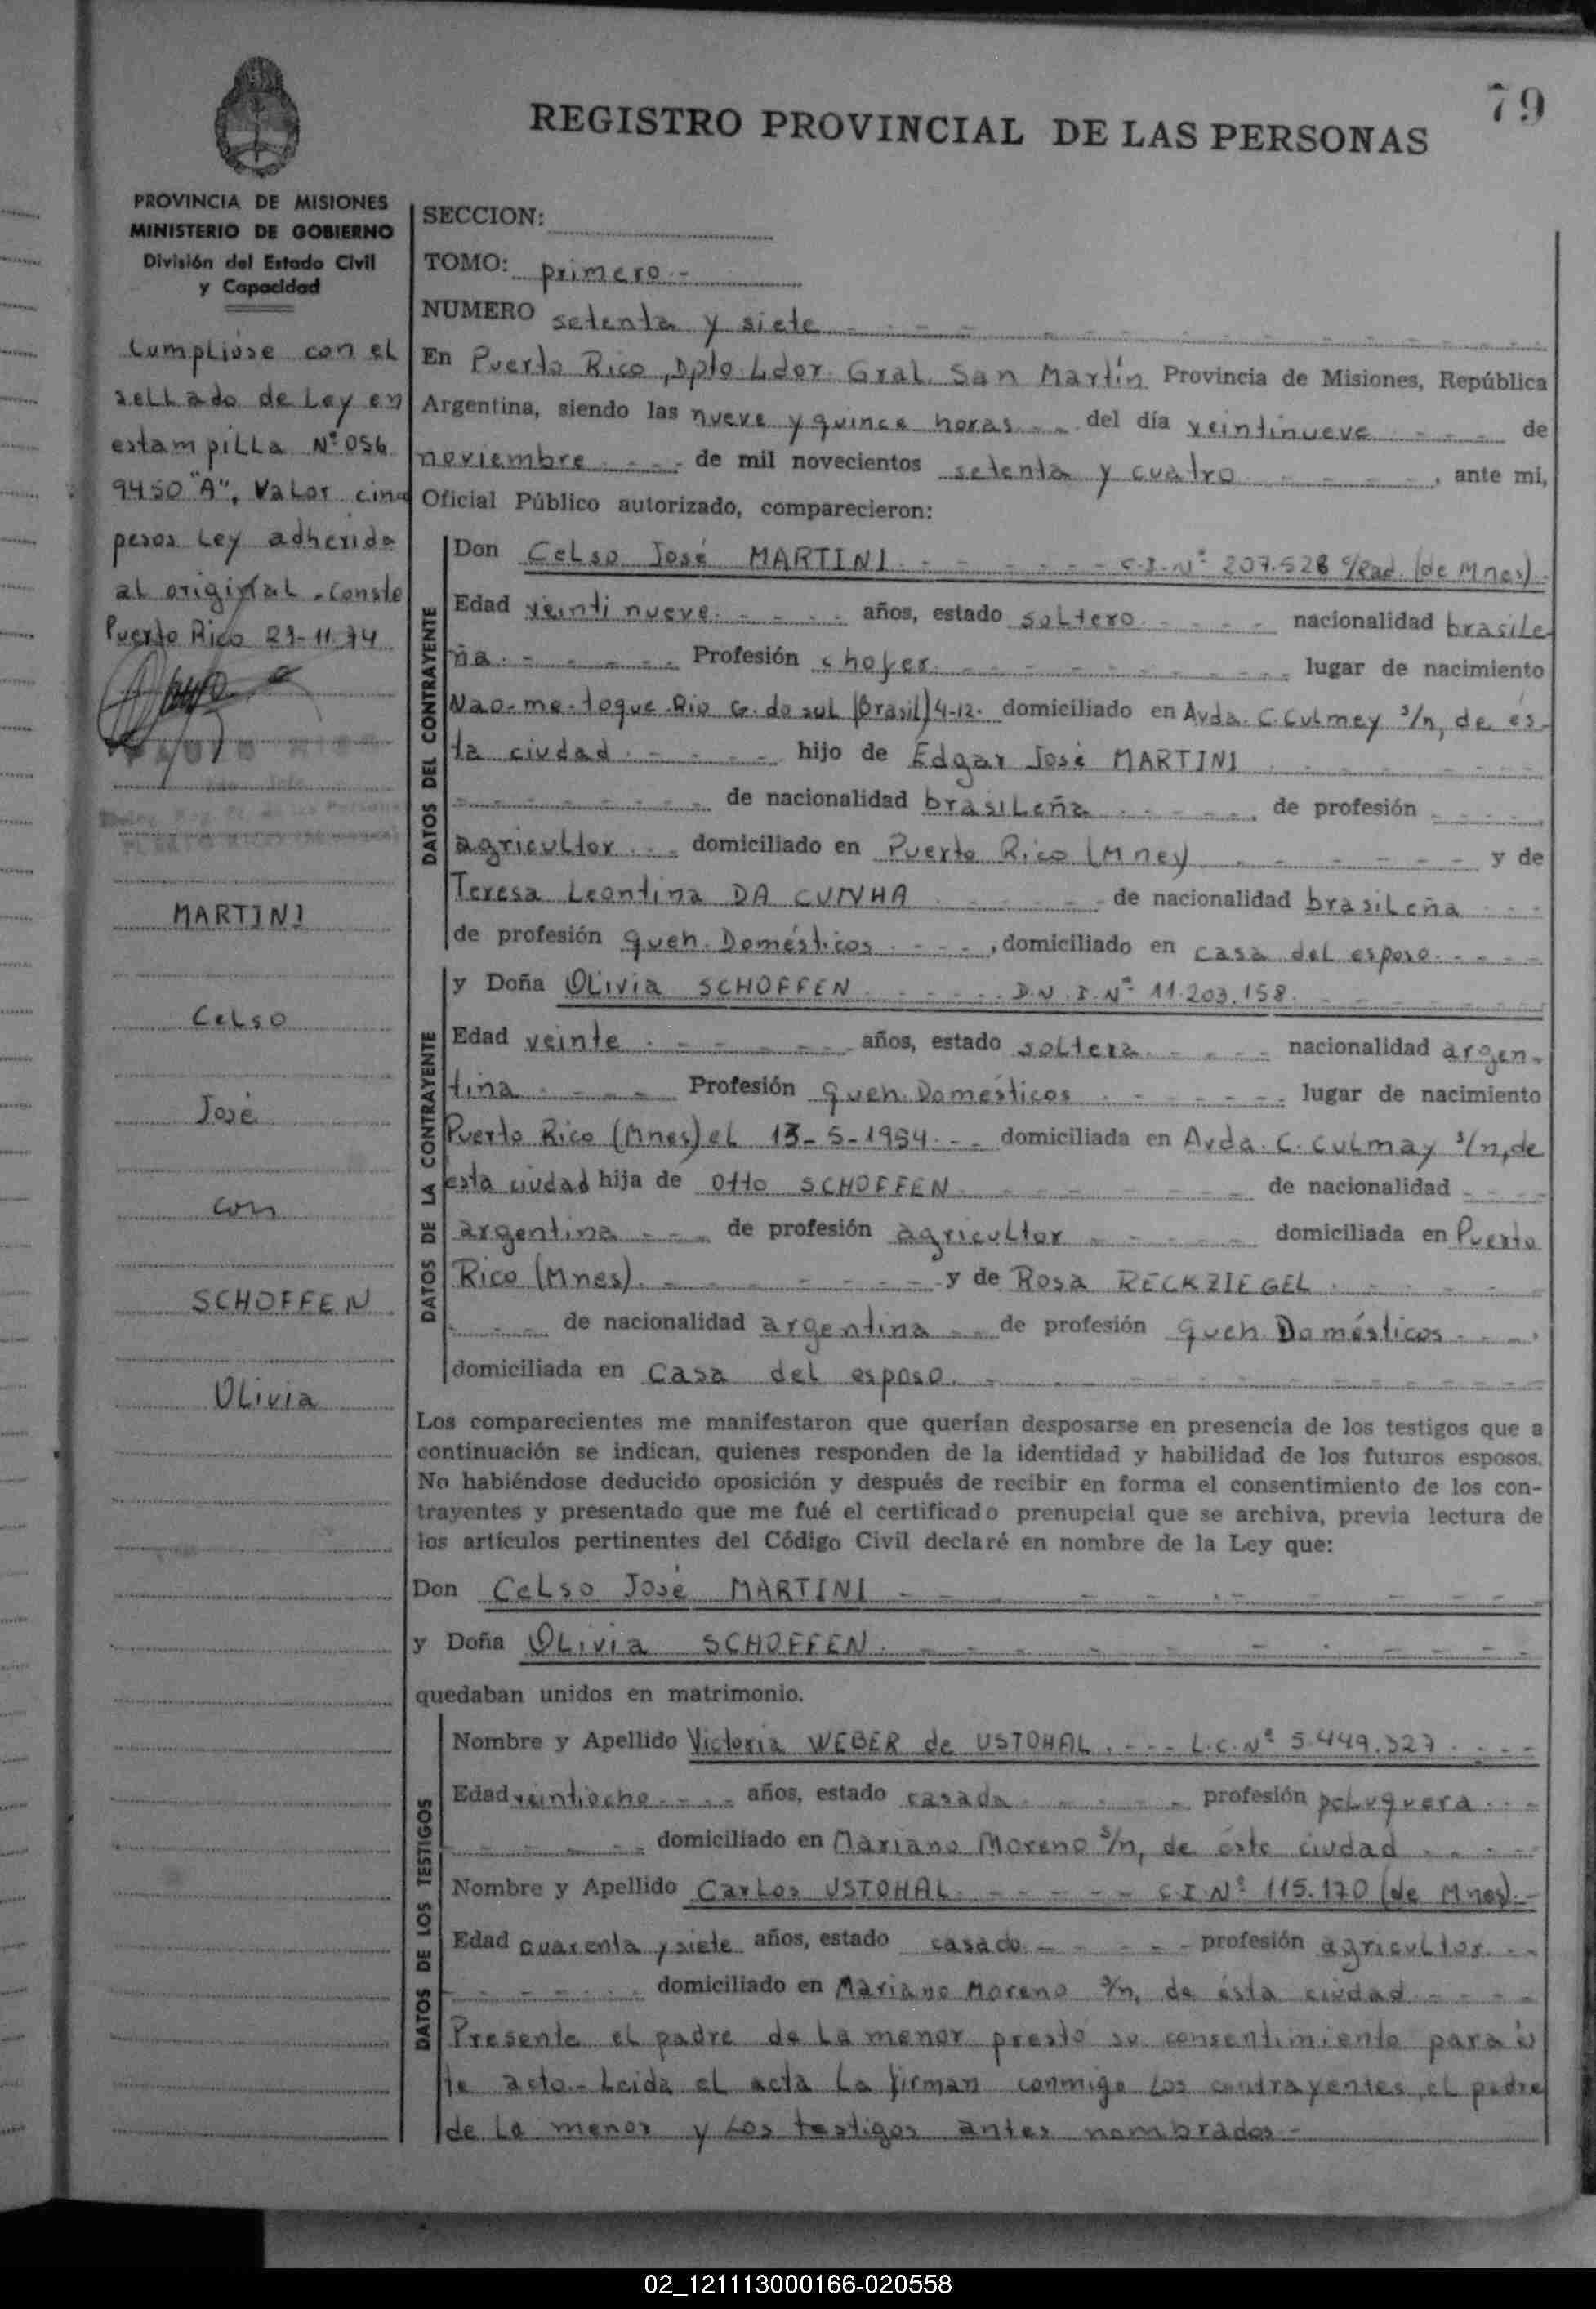 79
REGISTRO PROVINCIAL DE LAS PERSONAS
PROVINCIA DE MISIONES
MINISTERIO DE GOBIERNO
División del Estado Civil
y Capacidad
Cumplióse con el
sellado de Ley en
estampilla Nº 056
9450 "A", Valor cinco
pesos Ley adherida
al original. Conste
Puerto Rico 29-11-74
MARTINI
Celso
José
con
SCHOFFEN
Olivia
SECCION:
TOMO: primero.-
NUMERO setenta y siete
En Puerto Rico, Dpto. Ldor. Gral. San Martín Provincia de Misiones, República
Argentina, siendo las nueve y quince horas del día veintinueve de
noviembre de mil novecientos setenta y cuatro, ante mi,
Oficial Público autorizado, comparecieron:
DATOS DEL CONTRAYENTE
Don Celso José MARTINI C.I. Nº 207.528 c/Rad. (de Mnes).
Edad veintinueve años, estado soltero nacionalidad brasile-
ña. Profesión chofer lugar de nacimiento
Nao-me-toque-Rio G. do sul (Brasil) 4-12- domiciliado en Avda. C. Culmey s/n, de és-
ta ciudad hijo de Edgar José MARTINI
de nacionalidad brasileña de profesión
agricultor domiciliado en Puerto Rico (Mnes) y de
Teresa Leontina DA CUNHA de nacionalidad brasileña
de profesión queh. Domésticos, domiciliado en casa del esposo.
DATOS DE LA CONTRAYENTE
y Doña Olivia SCHOFFEN D.N.I. Nº 11.203.158.
Edad veinte años, estado soltera nacionalidad argen-
tina Profesión queh. Domésticos lugar de nacimiento
Puerto Rico (Mnes) el 13-5-1954.- domiciliada en Avda. C. Culmay s/n, de
esta ciudad hija de Otto SCHOFFEN de nacionalidad
argentina de profesión agricultor domiciliada en Puerto
Rico (Mnes). y de Rosa RECKZIEGEL
de nacionalidad argentina de profesión queh Domésticos
domiciliada en casa del esposo.
Los comparecientes me manifestaron que querían desposarse en presencia de los testigos que a
continuación se indican, quienes responden de la identidad y habilidad de los futuros esposos.
No habiéndose deducido oposición y después de recibir en forma el consentimiento de los con-
trayentes y presentado que me fué el certificado prenupcial que se archiva, previa lectura de
los artículos pertinentes del Código Civil declaré en nombre de la Ley que:
Don Celso José MARTINI
y Doña Olivia SCHOFFEN.
quedaban unidos en matrimonio.
DATOS DE LOS TESTIGOS
Nombre y Apellido Victoria WEBER de USTOHAL. L.C. Nº 5.449.327
Edad veintiocho años, estado casada profesión peluquera
domiciliado en Mariano Moreno s/n, de ésta ciudad
Nombre y Apellido Carlos USTOHAL. C.I. Nº 115.170 (de Mnes).-
Edad cuarenta y siete años, estado casado profesión agricultor
domiciliado en Mariano Moreno s/n, de ésta ciudad
Presente el padre de la menor prestó su consentimiento para és
te acto.- Leída el acta la firman conmigo los contrayentes, el padre
de la menor y los testigos antes nombrados.-
02_121113000166-020558